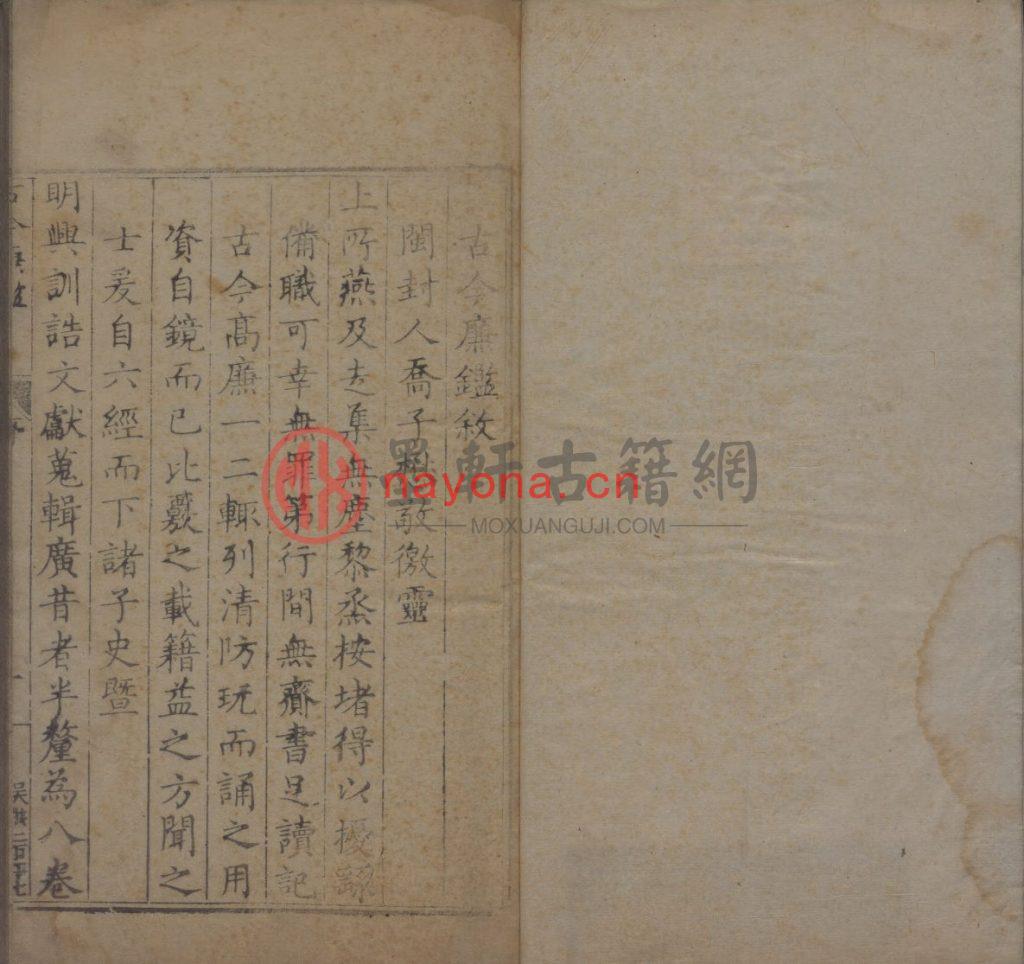 古今廉鑑敘
閩封人喬子敬徼靈
上所燕及走集無塵黎烝桉堵得以擾
備職可幸無罪第行間無齎書足讀記
古今高廉一二輒列清防玩而誦之用
資自鏡而已比覈之載籍益之方聞之
士爰自六經而下諸子史暨
明興訓誥文獻蒐輯廣昔者半釐為八卷
古今廉鑑
一
墨軒古籍網
nayona.cn
MOXUANGUJI.COM